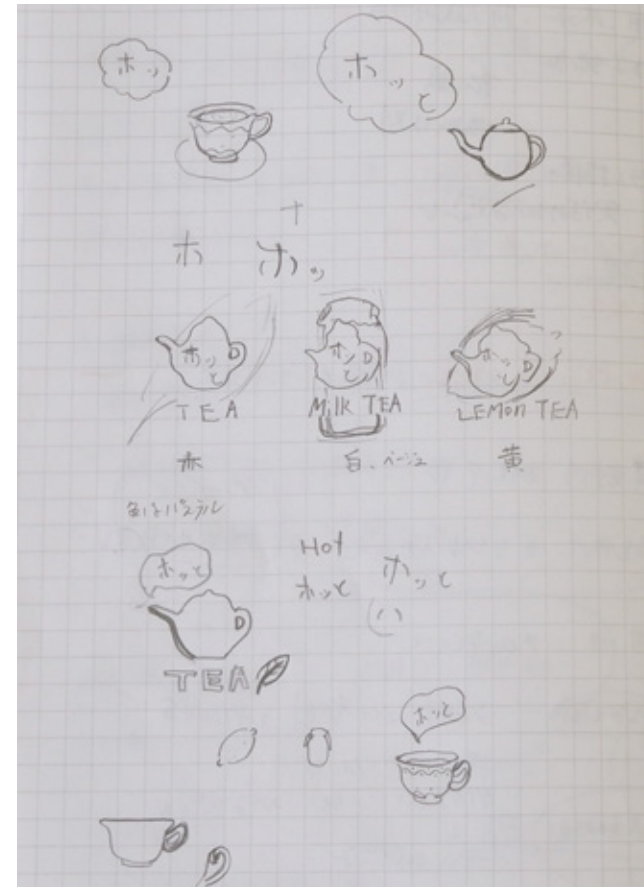 ホッ
ホッと
ホ ホッ
ホッと ホッと ホッと
TEA MilK TEA LEMon TEA
赤 白、ベージュ 黄
色はパステル
Hot
ホッと ホッと ホッと
TEA
ホッと